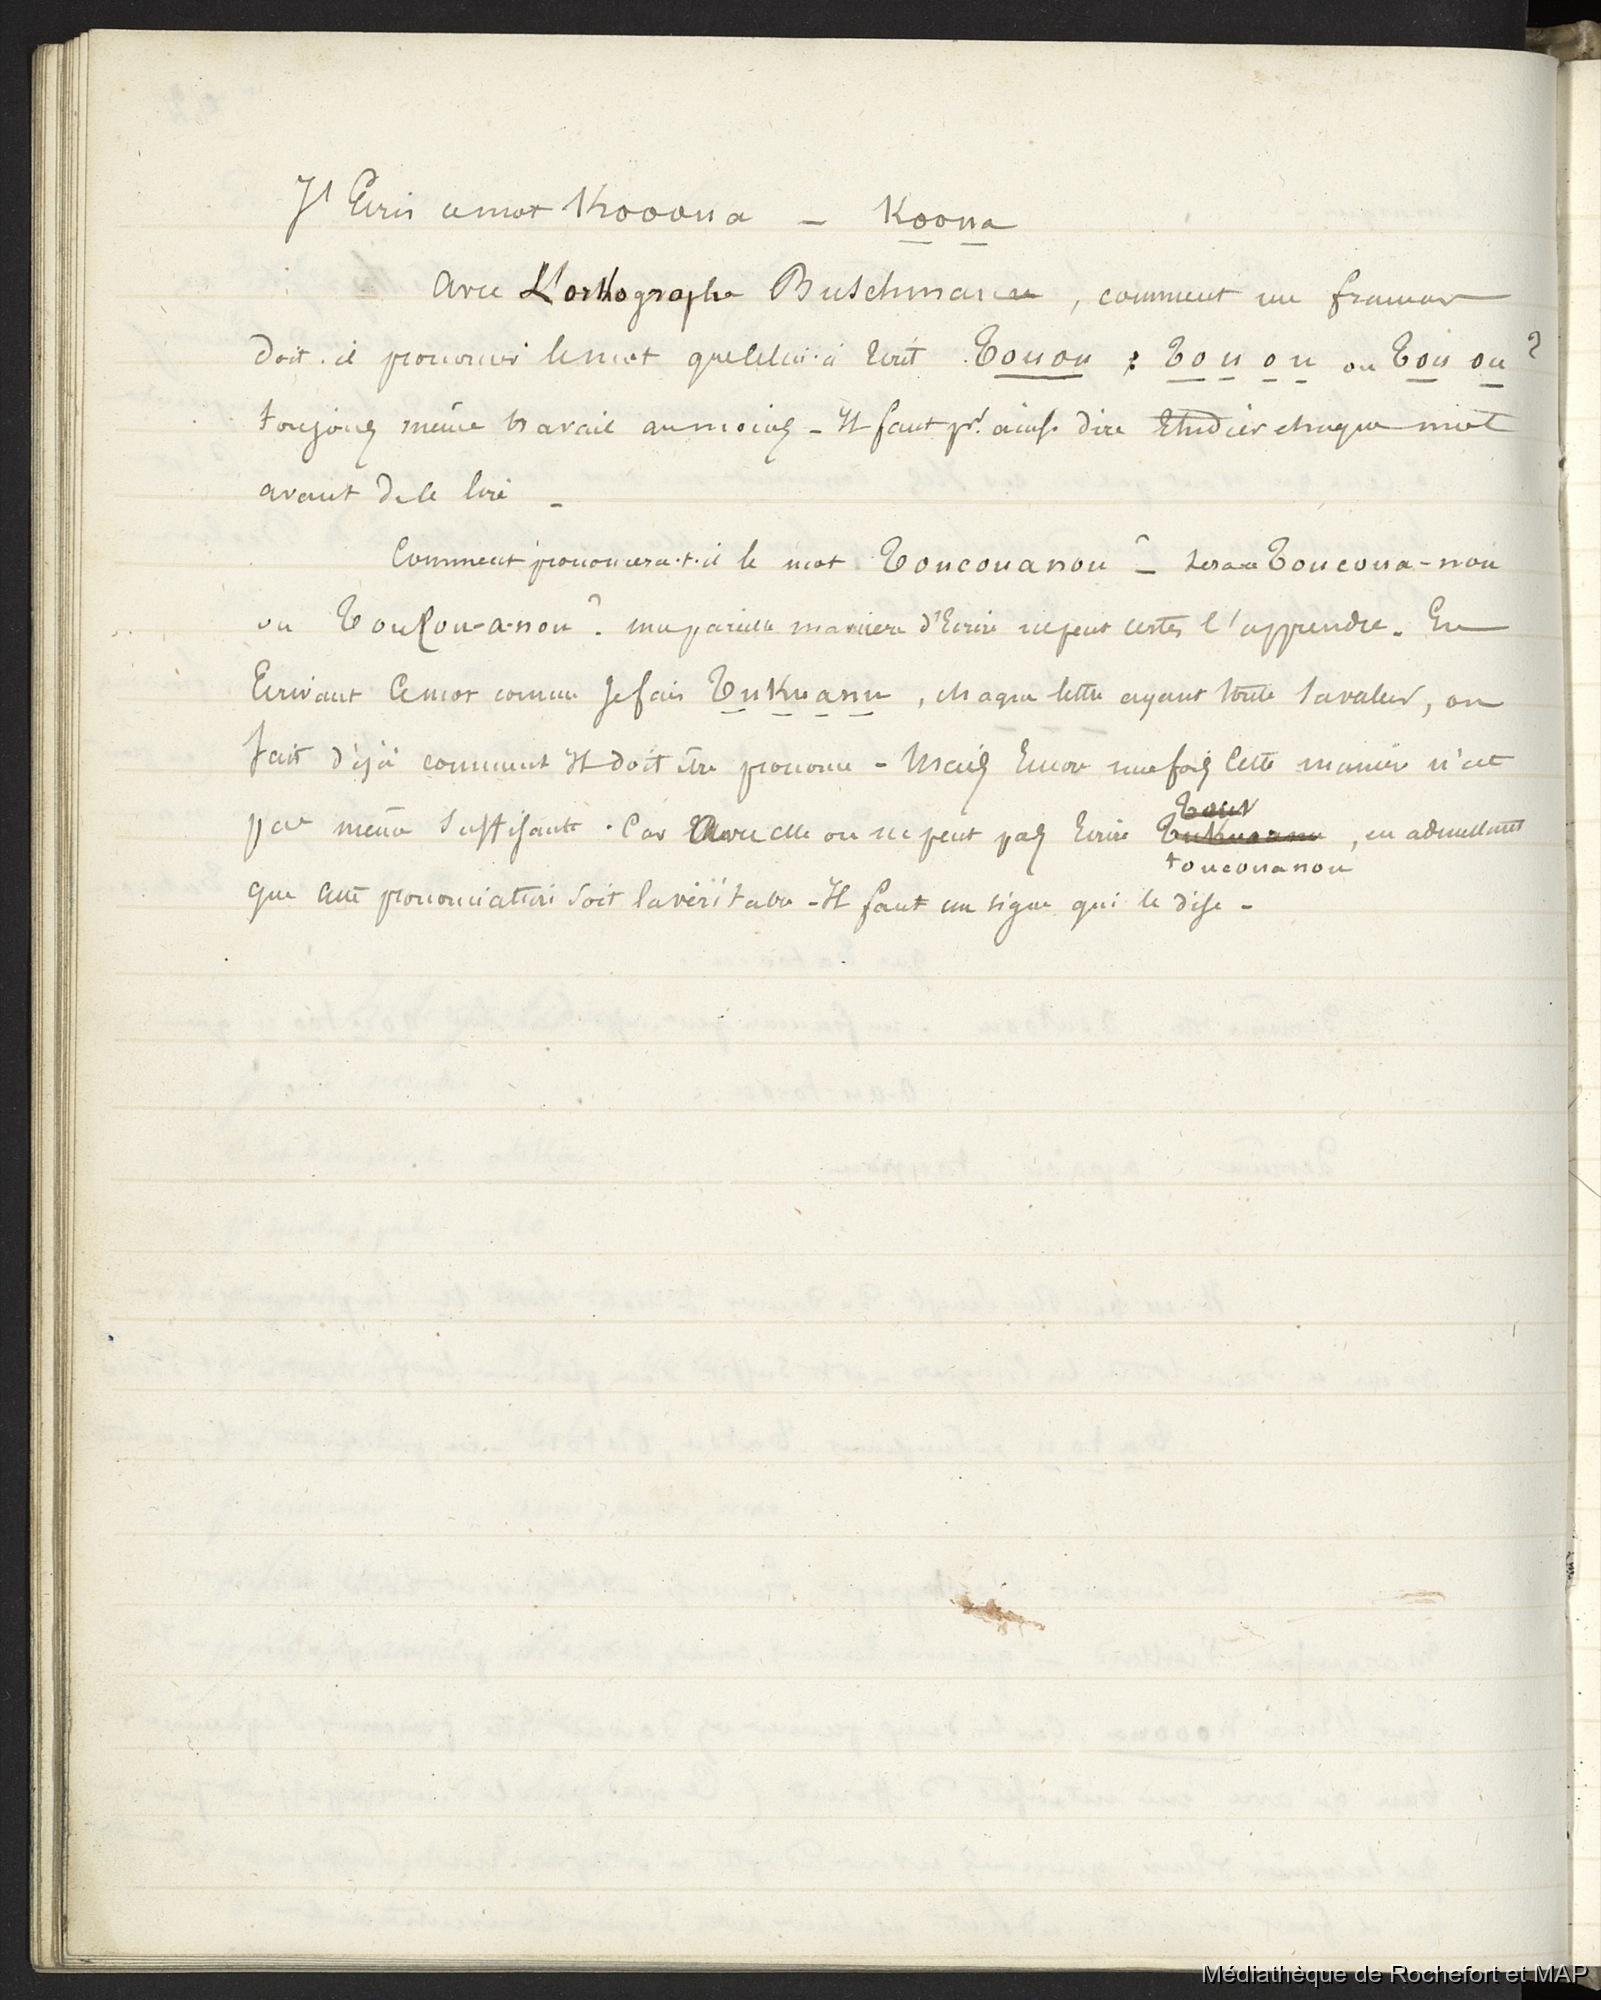 Jl Ecris ce mot Kooona - Koona
Avec L'orthographe Buschmann, comment un francais
doit-il prononcer le mot que celui-ci Ecrit Touou : To u o u ou Tou ou ?
toujours même travail au moins - Il faut pr. ainsi dire Etudier chaque mot
avant de le lire -
Comment prononcera-t-il le mot Toucouanou ? - sera ce Toucoua-nou
ou Toucou-a-nou ? une pareille maniere d'Ecrire ne peut certes l'apprendre. En
Ecrivant Ce mot comme Je fais Tukuanu, chaque lettre ayant toute sa valeur, on
sait déjà comment Il doit être prononcé - Mais Encore une fois Cette manière n'est
pas même suffisante. Car Avec elle on ne peut pas Ecrire Tukuanu, en admettant
toucouanou
que cette prononciation soit la véritable - Il faut un signe qui le dise -
Médiathèque de Rochefort et MAP